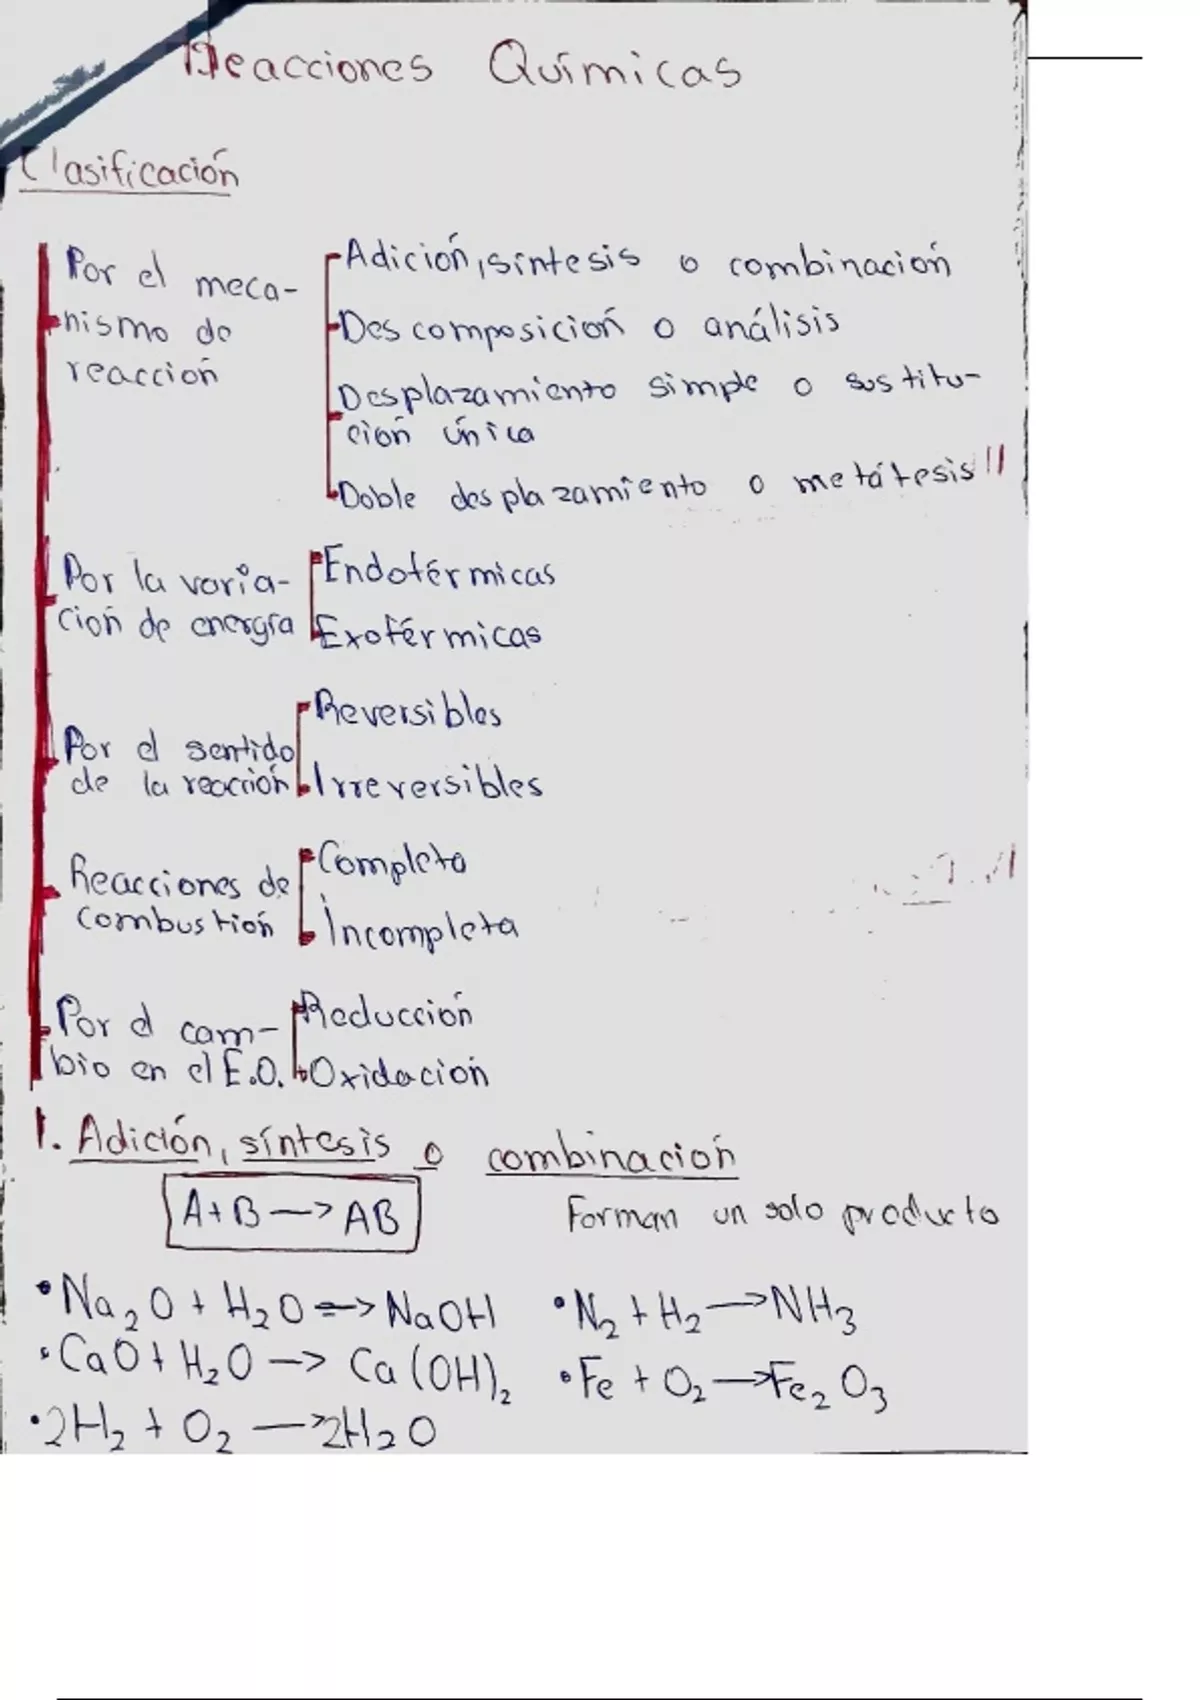 Reacciones Químicas
Clasificación
Por el meca-
nismo de
reacción
Adición, síntesis o combinación
Descomposición o análisis
Desplazamiento simple o sustitu-
ción única
Doble desplazamiento o metátesis
Por la varia-
ción de energía
Endotérmicas
Exotérmicas
Por el sentido
de la reacción
Reversibles
Irreversibles
Reacciones de
combustión
Completa
Incompleta
Por el cam-
bio en el E.O.
Reducción
Oxidación
1. Adición, síntesis o combinación
A+B → AB
Forman un solo producto
• Na₂O + H₂O => NaOH
• N₂ + H₂ → NH₃
• CaO + H₂O → Ca(OH)₂
• Fe + O₂ → Fe₂O₃
• 2H₂ + O₂ → 2H₂O